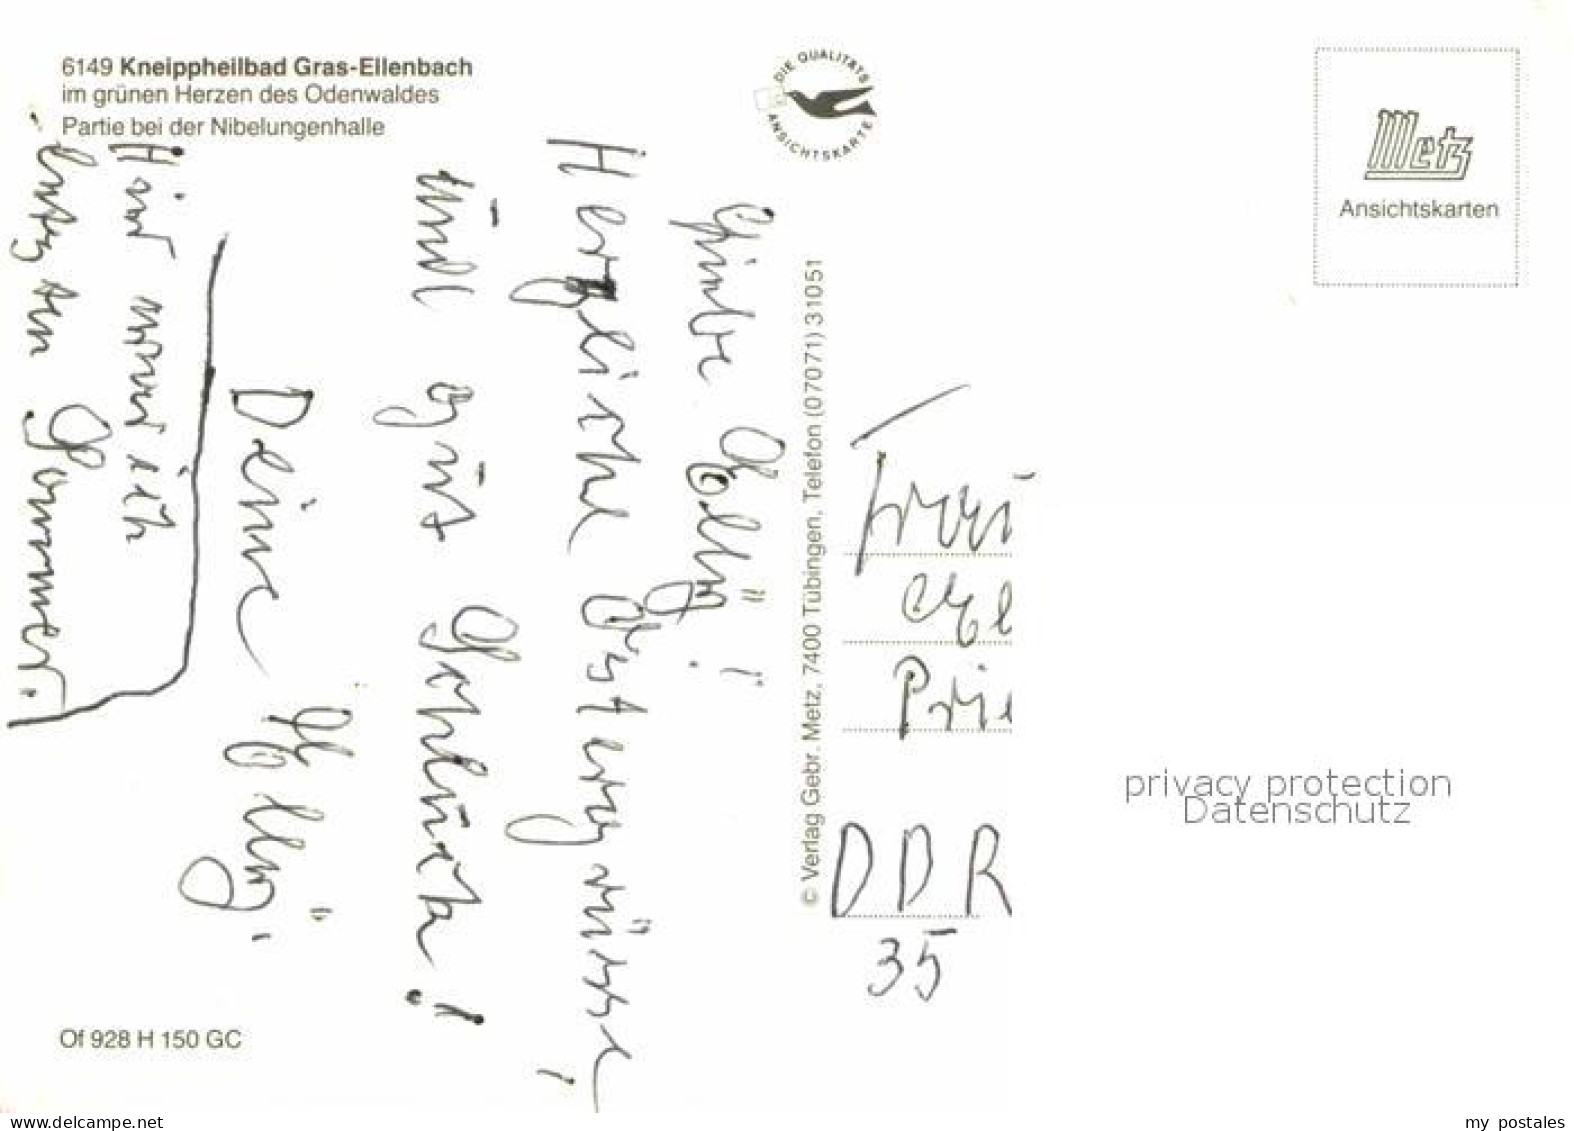 6149 Kneippheilbad Gras-Ellenbach
im grünen Herzen des Odenwaldes
Partie bei der Nibelungenhalle
DIE QUALITÄTS
ANSICHTSKARTE
Metz
Ansichtskarten
Herzliche Ostergrüsse!
und gute
Deine
Hier war ich
letzten Sommer.
© Verlag Gebr. Metz, 7400 Tübingen, Telefon (07071) 31051
Frau
DDR
35
privacy protection
Datenschutz
Of 928 H 150 GC
www.delcampe.net
my postales